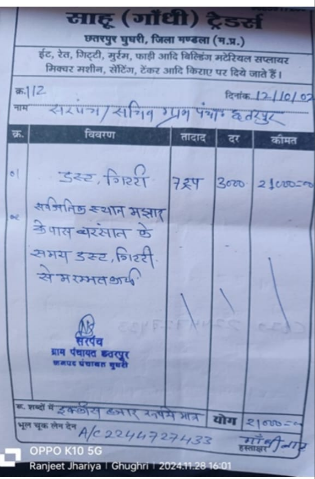 साहू (गाँधी) ट्रेडर्स
छतरपुर घुघरी, जिला मण्डला (म.प्र.)
ईट, रेत, गिट्टी, मुर्रम, फाड़ी आदि बिल्डिंग मटेरियल सप्लायर
मिक्चर मशीन, सेंटिंग, टेंकर आदि किराए पर दिये जाते हैं।
क्र. 112 दिनांक 12/10/02
नाम सरपंच/सचिव ग्राम पंचा. छतरपुर
क्र. विवरण तादाद दर कीमत
01 डस्ट, गिट्टी 7 ट्रप 3000 21000=00
सार्वजनिक स्थान मझार
के पास बरसात के
समय डस्ट, गिट्टी
से मरम्मत कार्य
सरपंच
ग्राम पंचायत छतरपुर
जनपद पंचायत घुघरी
रू. शब्दों में इक्कीस हजार रूपये मात्र योग 21000=00
भूल चूक लेन देन
A/C 2244727433
हस्ताक्षर
OPPO K10 5G
Ranjeet Jhariya | Ghughri | 2024.11.28 16:01